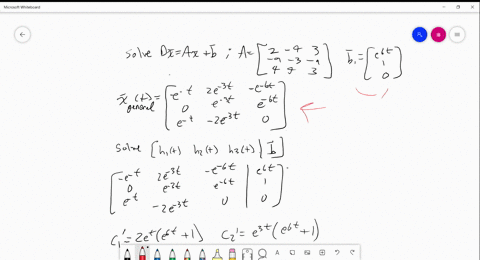 Microsoft Whiteboard
Solve Dx̄ = Ax̄ + b̄ ; A = [2 -4 3; -9 -3 -9; 4 4 3] b̄₁ = [e^6t; 1; 0]
x̄(t) = [e^-t 2e^-3t -e^-6t; 0 e^-2t e^-6t; e^-t -2e^-3t 0]
general
Solve [h₁(t) h₂(t) h₃(t) | b̄]
[-e^-t 2e^-3t -e^-6t | e^6t; 0 e^-2t e^-6t | 1; e^-t -2e^-3t 0 | 0]
C₁' = 2e^t(e^6t + 1) C₂' = e^3t(e^6t + 1)